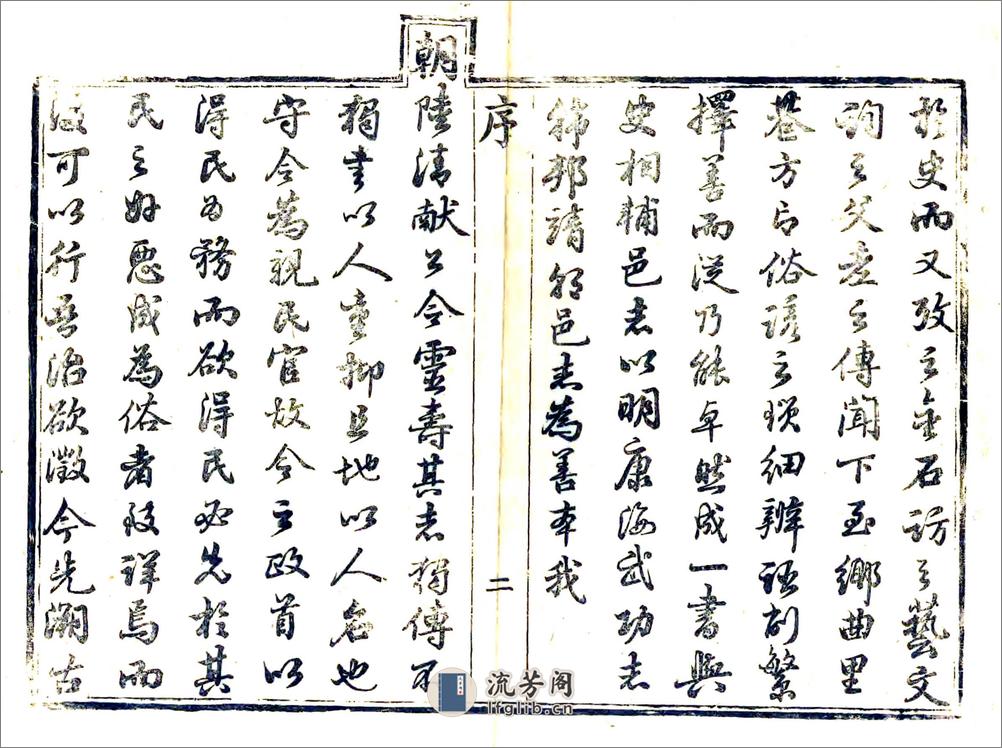 於史而又攷之金石訪之藝文
詢之父老之傳聞下至鄉曲里
巷方言俗諺之瑣細辨語削繁
擇善而從乃能卓然成一書與
史相輔邑志以明康海武功志
韓邦靖朝邑志為善本我
序
二
朝
陸清献公令靈壽其志獨傳不
獨書以人重抑且地以人名也
守令為親民官故令之政首以
得民為務而欲得民必先於其
民之好惡成為俗者致詳焉而
後可以行吾治欲徵今先溯古
流芳阁
lfglib.cn